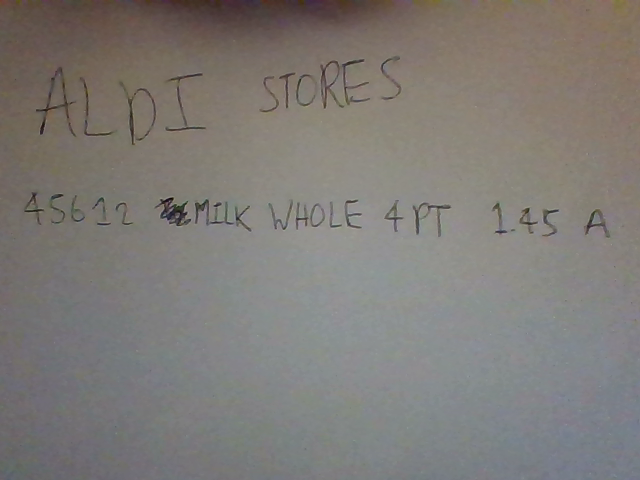 ALDI STORES
45612 MILK WHOLE 4PT 1.45 A